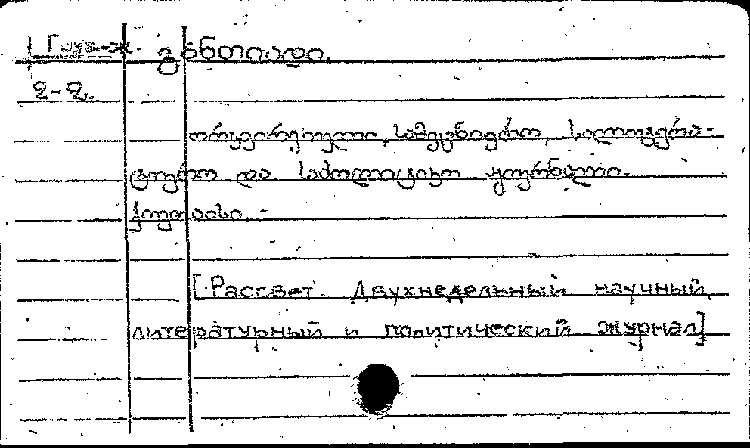 Груз-ж. განთიადი.
გ-გ.
ორკვირეული, სამეცნიერო, სალიტერა-
ტურო და საპოლიტიკო ჟურნალი.
ქუთაისი. -
[Рассвет. Двухнедельный научный,
литературный и политический журнал]